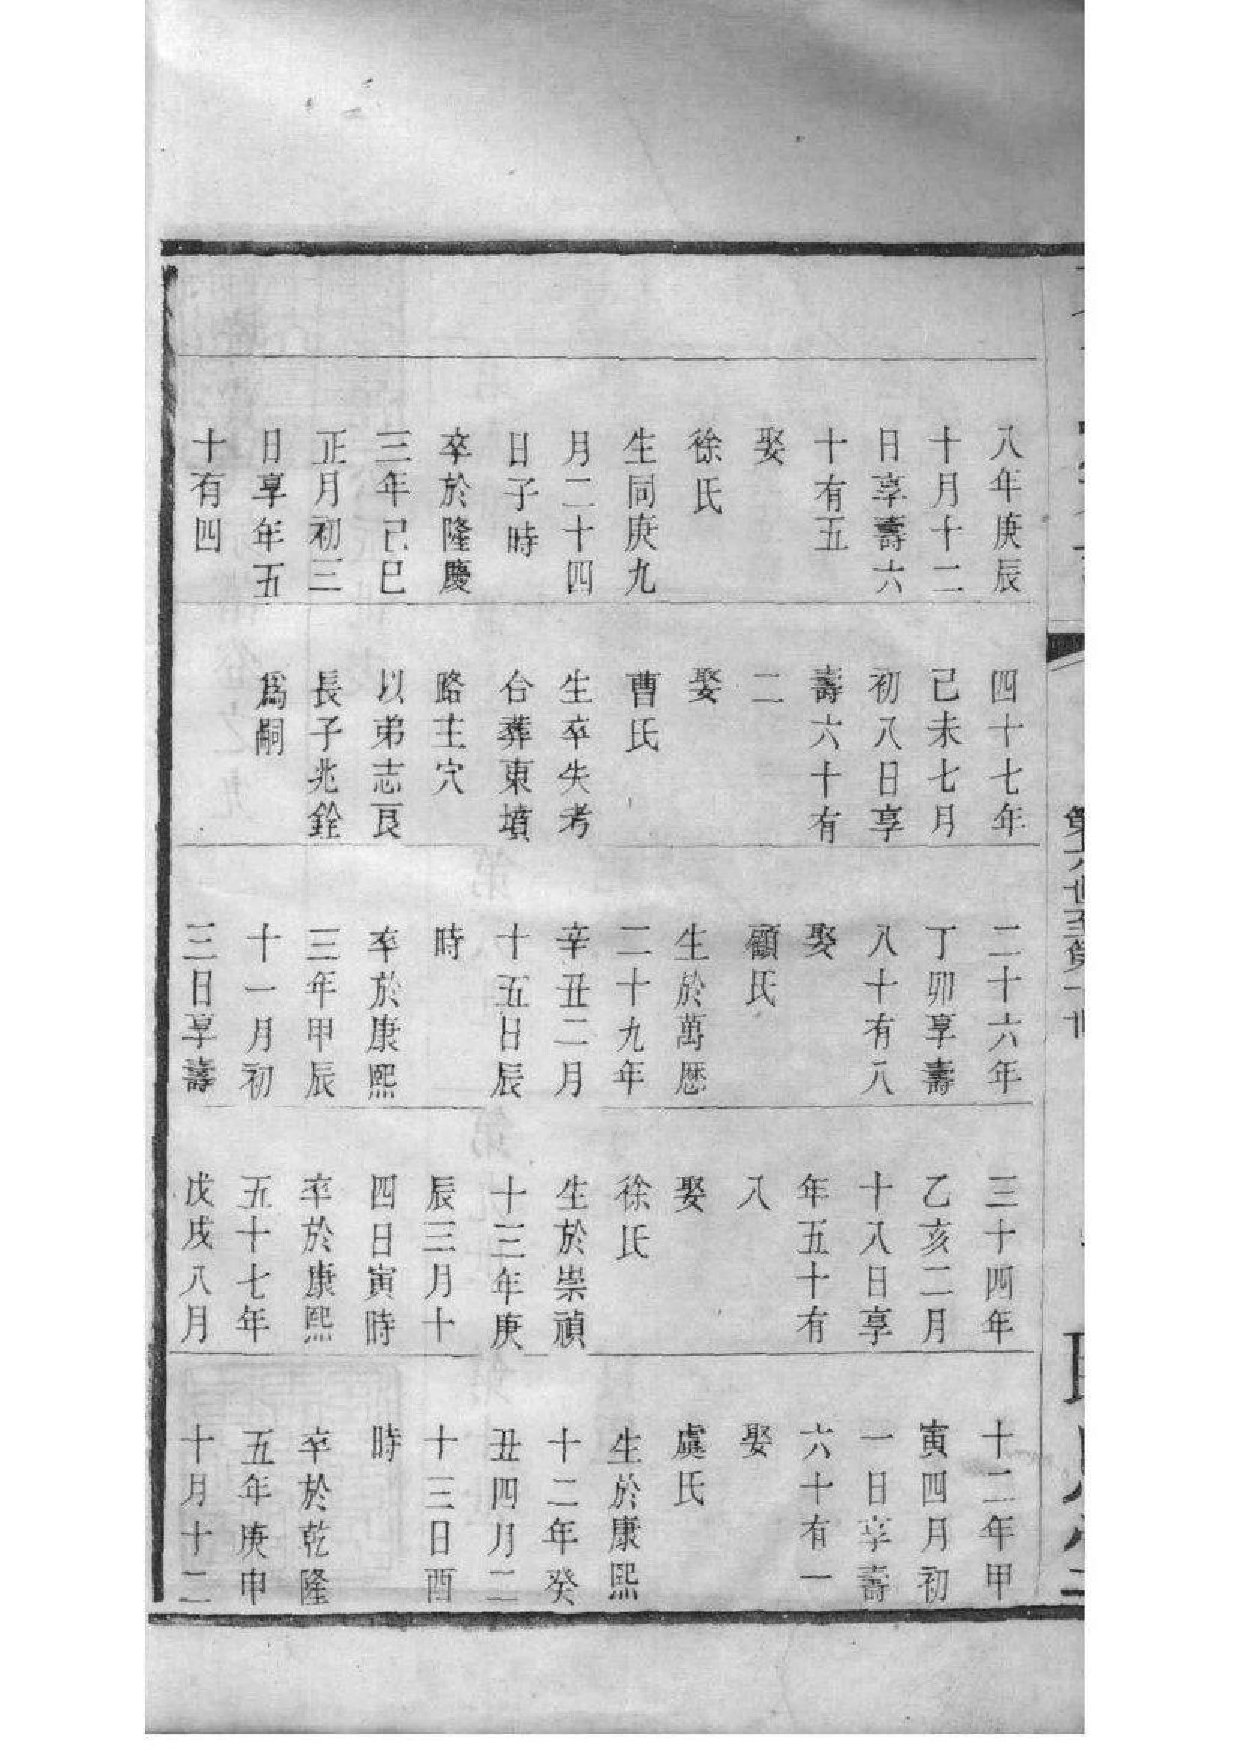 八年庚辰
十月十二
日享壽六
十有五
娶
徐氏
生同庚九
月二十四
日子時
卒於隆慶
三年己巳
正月初三
日享年五
十有四
四十七年
己未七月
初八日享
壽六十有
二
娶
曹氏
生卒失考
合葬東墳
略主穴
以弟志良
長子兆銓
爲嗣
二十六年
丁卯享壽
八十有八
娶
顧氏
生於萬歷
二十九年
辛丑二月
十五日辰
時
卒於康熙
三年甲辰
十一月初
三日享壽
三十四年
乙亥二月
十八日享
年五十有
八
娶
徐氏
生於崇禎
十三年庚
辰三月十
四日寅時
卒於康熙
五十七年
戊戌八月
十二年甲
寅四月初
一日享壽
六十有一
娶
虞氏
生於康熙
十二年癸
丑四月二
十三日酉
時
卒於乾隆
五年庚申
十月十二